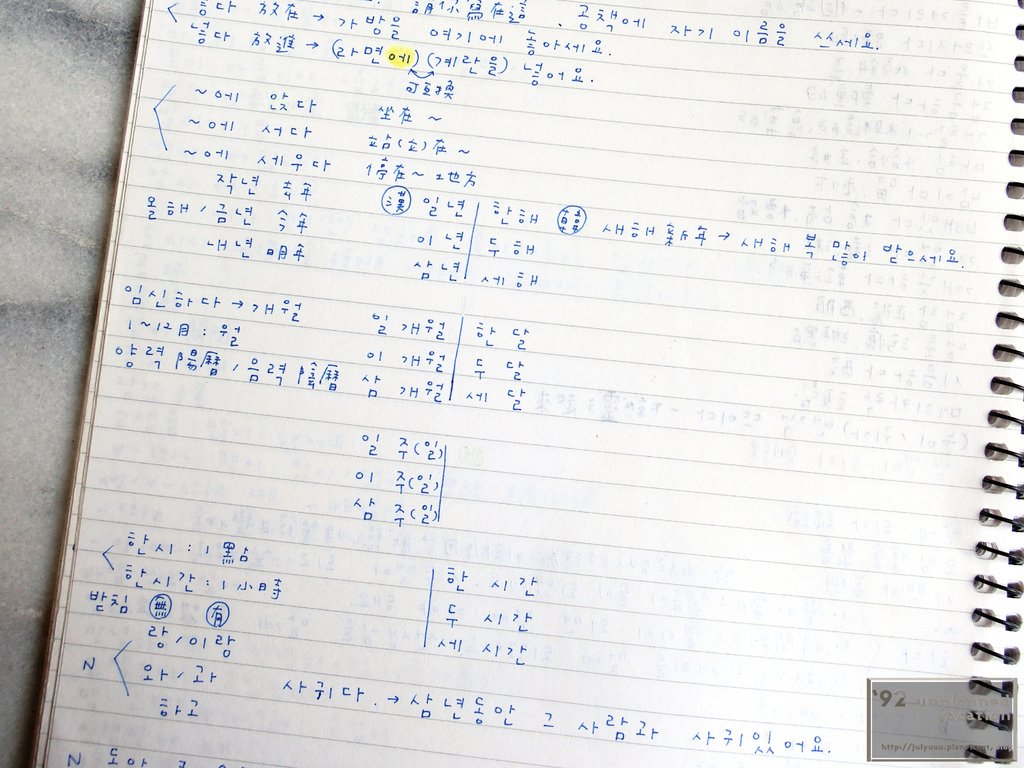 동다 放在 → 가방을 여기에 놓아세요. 공책에 자기 이름을 쓰세요.
넣다 放進 → (라면에) (계란을) 넣어요.
可互換
~에 앉다 坐在 ~
~에 서다 站(立)在 ~
~에 세우다 停在~ 地方
작년 去年
올해/금년 今年
내년 明年
漢 일년 한해
이년 두해
삼년 세해
새해 新年 → 새해 복 많이 받으세요.
임신하다 → 개월 일 개월 한 달
1~12月 : 월 이 개월 두 달
양력 陽曆, 음력 陰曆 삼 개월 세 달
일 주(일)
이 주(일)
삼 주(일)
한시 : 1點
한시간 : 1小時 한 시간
받침 無 有 두 시간
랑/이랑 세 시간
N 와/과
하고
사귀다. → 삼년동안 그 사람과 사귀있어요.
N
'92
http://julyuuu.pixnet.net/blog